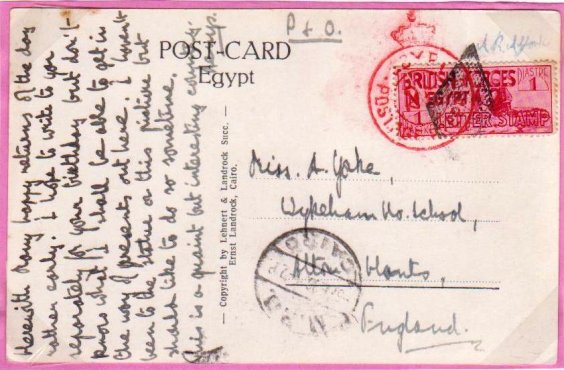 Herewith Many happy returns of the day
rather early. I hope to write to you
separately for your birthday but don't
know what I shall be able to get in
the way of presents out here. I haven't
been to the statue on this picture but
should like to do so sometime.
This is a quaint but interesting country.
P & O.
POST-CARD
Egypt
— Copyright by Lehnert & Landrock Succ. —
Ernst Landrock, Cairo.
BRITISH FORCES
IN EGYPT
LETTER STAMP
PIASTRE
1
1
POSTAL
Miss. A Yorke,
Wykeham Ho. School,
Alton Hants,
England.
CAIRO